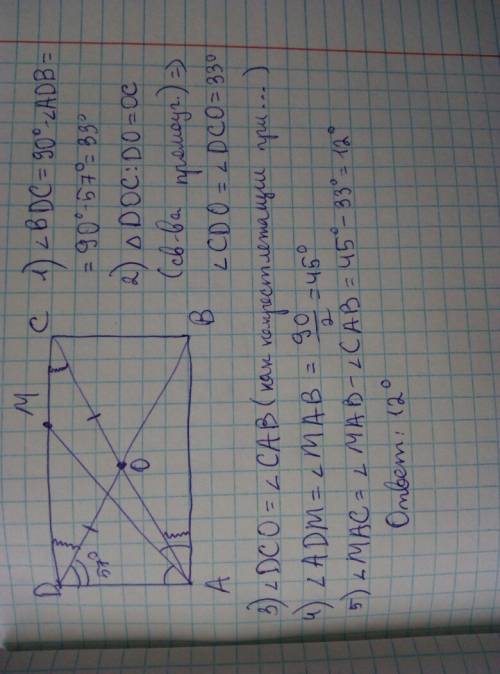 D
M
C
57°
O
A
B
1) ∠BDC = 90° - ∠ADB =
= 90° - 57° = 33°
2) △DOC: DO = OC
(св-ва прямоуг.) =>
∠CDO = ∠DCO = 33°
3) ∠DCO = ∠CAB (как накрестлежащие при...)
4) ∠ADM = ∠MAB = 90/2 = 45°
5) ∠MAC = ∠MAB - ∠CAB = 45° - 33° = 12°
Ответ: 12°